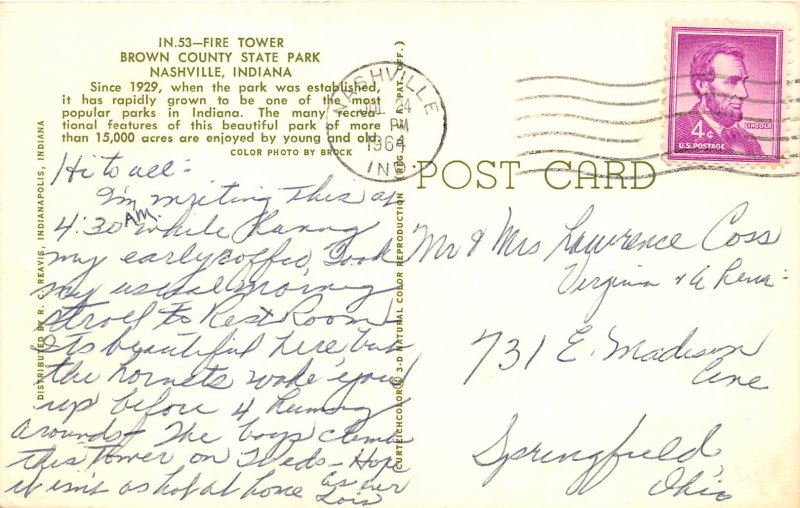 IN.53—FIRE TOWER
BROWN COUNTY STATE PARK
NASHVILLE, INDIANA
Since 1929, when the park was established,
it has rapidly grown to be one of the most
popular parks in Indiana. The many recrea-
tional features of this beautiful park of more
than 15,000 acres are enjoyed by young and old.
COLOR PHOTO BY BROCK
DISTRIBUTED BY R. C. REAVIS, INDIANAPOLIS, INDIANA
Hi to all-
I'm writing this at
4:30 AM. while having
my early coffee, Took
my usual morning
stroll to Rest Room
Its beautiful here, but
the hornets wake you
up before 4 huming
around- The boys climbed
this tower on Weds- Hope
it isn't as hot at home
as ever
Lois
CURTEICHCOLOR® 3-D NATURAL COLOR REPRODUCTION (REG. U.S.A. PAT. OFF.)
NASHVILLE
JUL 24
PM
1964
IND.
4¢
LINCOLN
U.S. POSTAGE
POST CARD
Mr & Mrs Lawrence Coss
Virginia &
731 E. Madison
Ave
Springfield,
Ohio